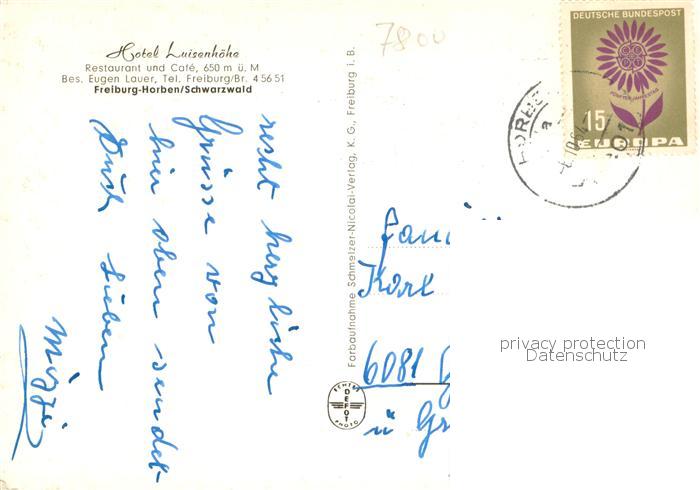 Hotel Luisenhöhe
Restaurant und Café, 650 m ü. M
Bes. Eugen Lauer, Tel. Freiburg/Br. 4 56 51
Freiburg-Horben/Schwarzwald
7800
DEUTSCHE BUNDESPOST
FÜNFTER JAHRESTAG
15
EUROPA
recht herzliche
Grüsse von
hier oben sendet
Euch Lieben
Mizzi
Farbaufnahme Schmelzer-Nicolai-Verlag, K. G., Freiburg i. B.
ECHTES
DEFOT
PHOTO
Karl
6081
ü Gr
privacy protection
Datenschutz